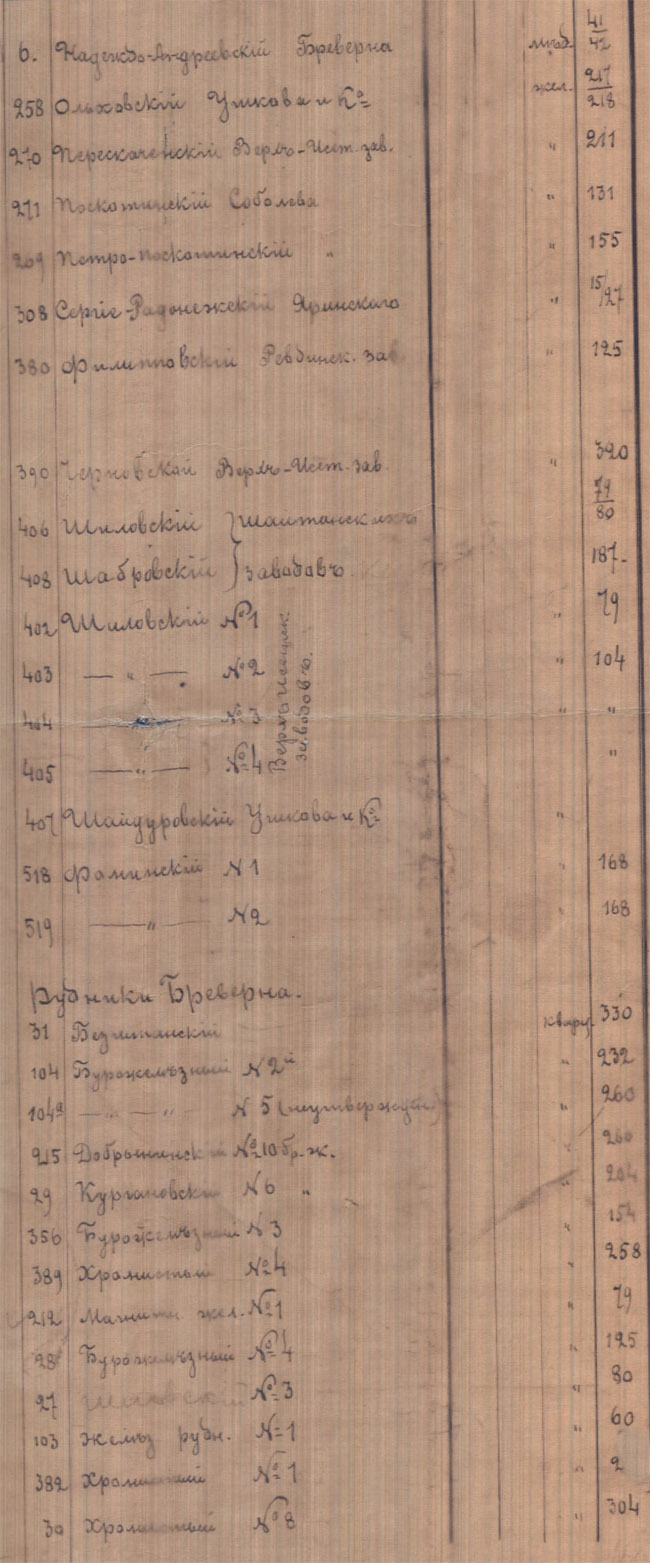 6. Надеждо-Андреевскій Бреверна мѣд. 41/42
258 Ольховскій Ушкова и Ко жел. 217/218
270 Перескаченскій Верхъ-Исет. зав. " 211
271 Поскотинскій Соболева " 131
269 Петро-Поскотинскій " " 155
308 Сергіе-Радонежскій Яринскаго " 15/27
380 Филипповскій Ревдинск. зав. " 125
390 Черновской Верхъ-Исет. зав. " 320
406 Шиловскій } Шайтанскихъ 79/80
408 Шабровскій } заводовъ. 187
402 Шиловскій №1 " 79
403 — " — №2 " 104
404 №3 " "
405 — " — №4 "
Верхъ-Исетск. заводовъ.
407 Шайдуровскій Ушкова и Ко "
518 Фоминскій N1 " 168
519 — " — N2 " 168
Рудники Бреверна.
31 Безымянскій кварт. 330
104 Бурожелѣзный N2й " 232
104а — " — N5 (неутвержден) " 260
215 Добрынинскій №10 бр. ж. " 260
29 Кургановскій №6 " " 204
356 Бурожелѣзный №3 " 154
389 Хромистый №4 " 258
212 Магнитн жел. №1 " 79
28 Буроželѣзный №4 " 125
27 №3 " 80
103 Желѣз рудн. №1 " 60
382 Хромистый №1 " 2
30 Хромистый №8 " 304